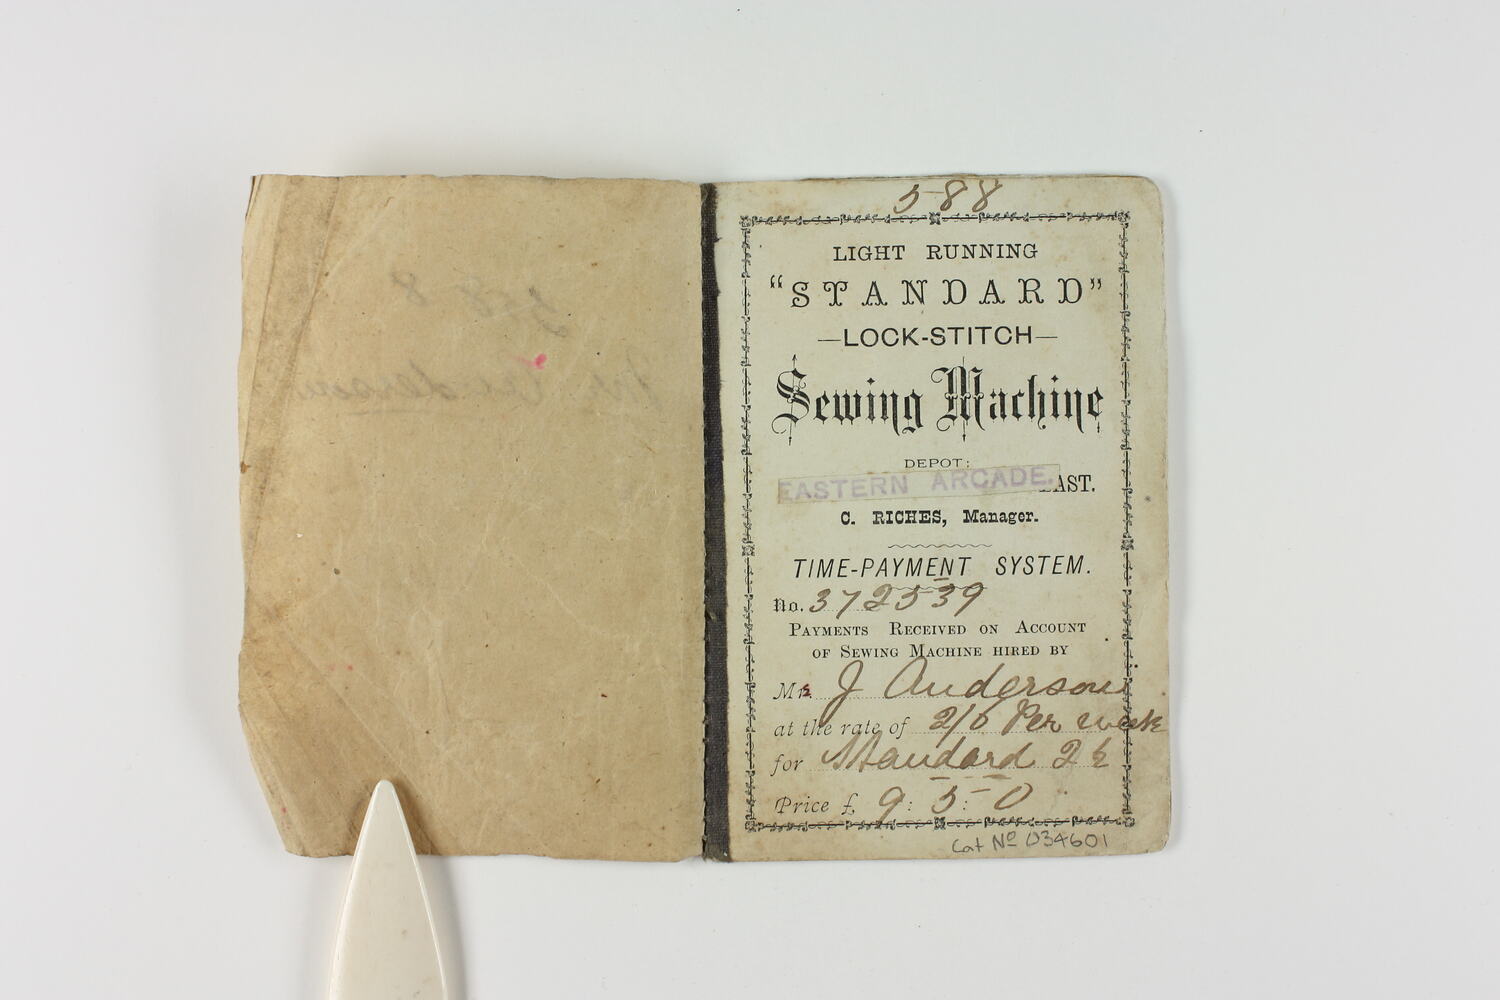 588
LIGHT RUNNING
"STANDARD"
—LOCK-STITCH—
Sewing Machine
DEPOT:
EASTERN ARCADE. EAST.
C. RICHES, Manager.
TIME-PAYMENT SYSTEM.
No. 372539
PAYMENTS RECEIVED ON ACCOUNT
OF SEWING MACHINE HIRED BY
Mrs. J Anderson
at the rate of 2/6 Per week
for Standard 2½
Price £ 9: 5: 0
Cat No 034601